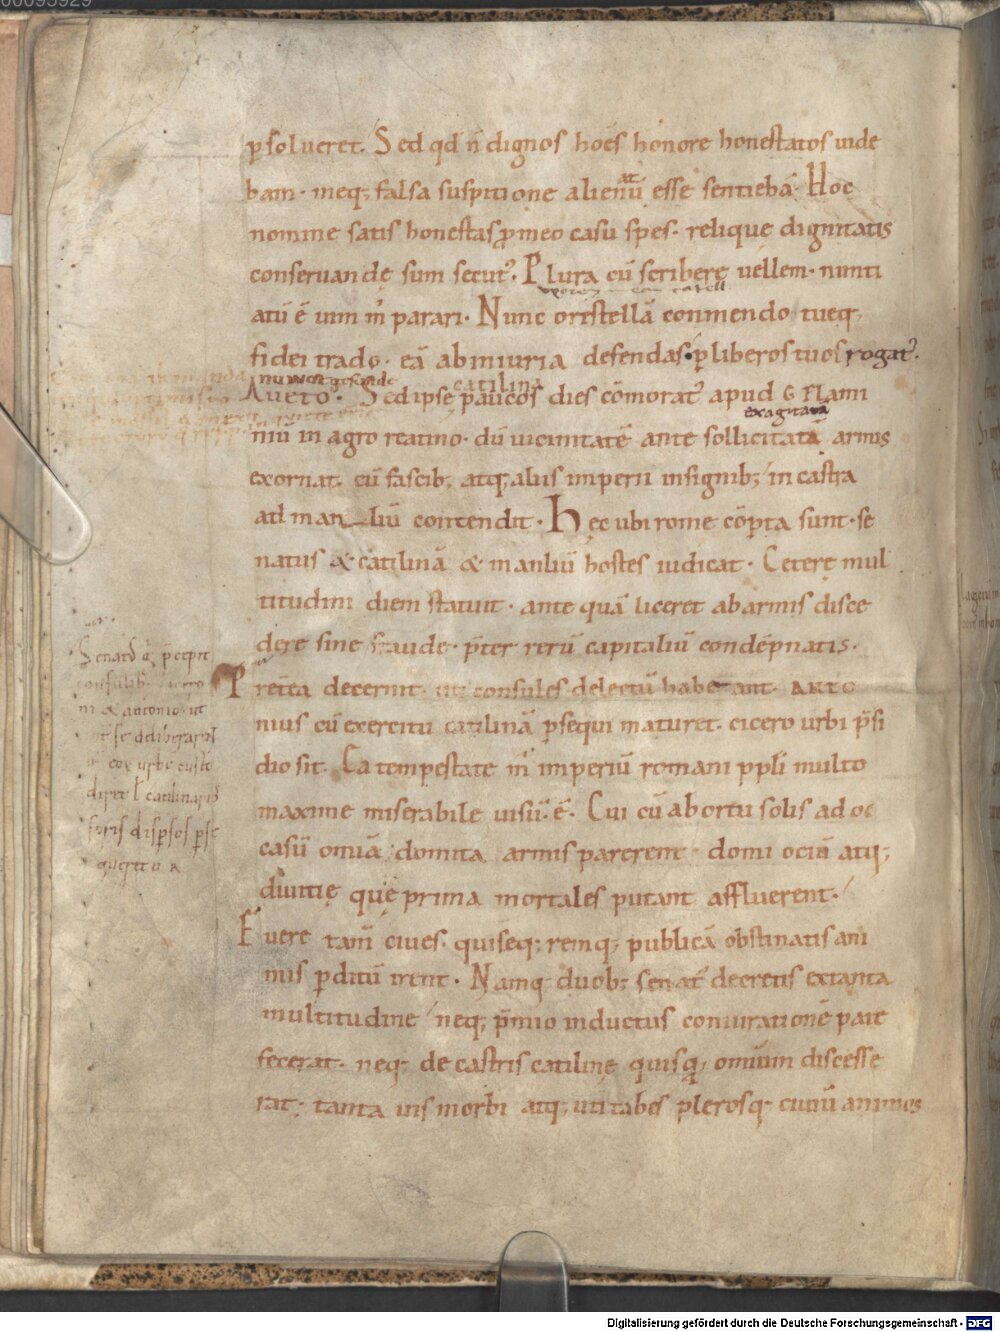 00095929
ꝑsolueret. Sed qd n̄ dignos hoēs honore honestatos uide
bam. meq; falsa suspitione alienū esse sentiebā. Hoc
nomine satis honestas ꝓmeo casu spes. relique dignitatis
conseruandę sum secut᷒. Plura cū scriberę uellem. nunti
atū ē uim m̄ parari. Nunc orestellā conmendo tueq;
fidei trado. eā abiniuria defendas. ꝑliberos tuos rogat᷒.
catilina
Aueto. Sed ipse paucos dies cōmorat᷒ apud G Flami
exagitata
niū in agro reatino. dū uicinitatē ante sollicitatā armis
exornat. cū fascib; atq; aliis imperii insignib; in castra
ad manliū contendit. Hęc ubi rome cōꝑta sunt. se
natus & catilinā & manliū hostes iudicat. Ceterę mul
titudini diem statuit. ante quā liceret abarmis disce
dere sine fraude. p̄ter rerū capitaliū condēpnatis.
Pretea decernit. uti consules delectū habeant. ANTO
nius cū exercitu catilinā ꝑsequi maturet. cicero urbi p̄si
dio sit. Ea tempestate m̄ imperiū romani ppli multo
maxime miserabile uisū. ē. Cui cū abortu solis ad oc
casū omīa domita armis parerent. domi ociū atq;
diuitię quę prima mortales putant affluerent.
Fuere tam̄ ciues. quiseq; remq; publicā obstinatis ani
mis ꝑditū irent. Namq; duob; senat᷒ decretis extanta
multitudine neq; p̄mio inductus coniurationē pate
fecerat. neq; de castris catilinę quisq; omium discesse
rat; tanta uis morbi atq; uti tabes plerosq; ciuiū animos
Senatꝰ q; p̄cepit
consulib. cicero
ni & antonio. ut
int se deliberarent
foris disꝑsos ꝑse
Digitalisierung gefördert durch die Deutsche Forschungsgemeinschaft - DFG